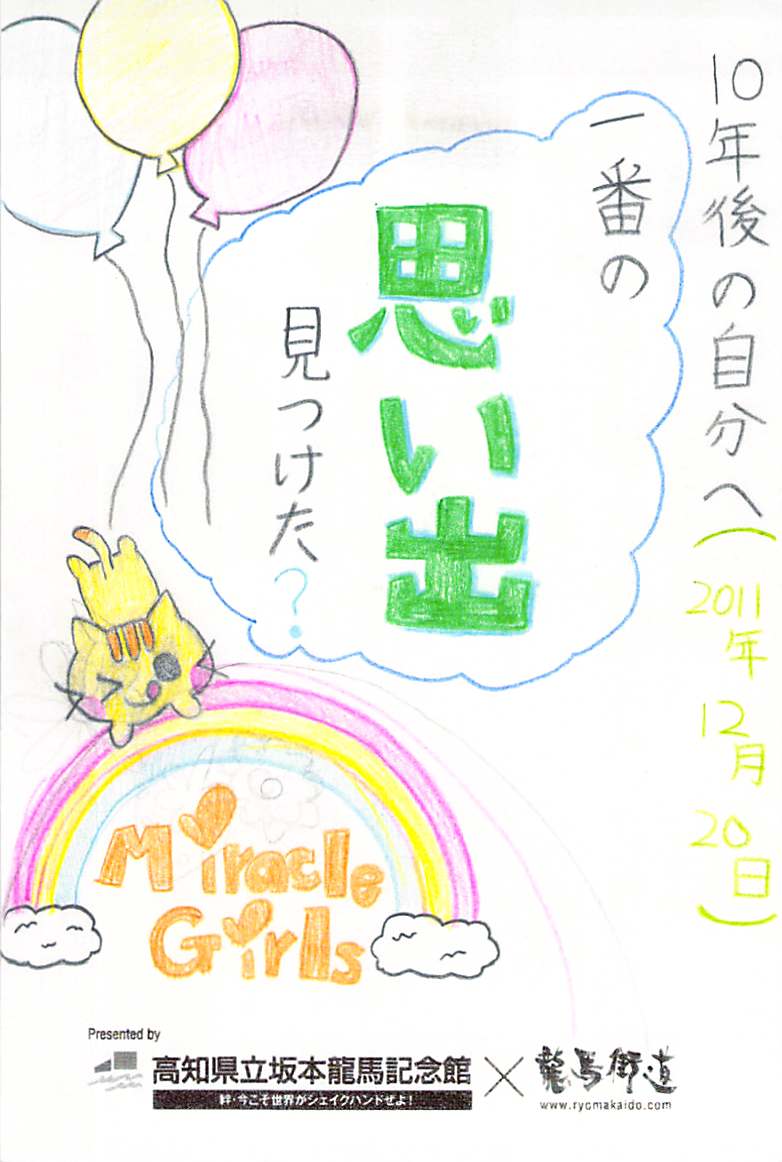 10年後の自分へ(2011年12月20日)
一番の
思い出
見つけた?
Miracle
Girls
Presented by
高知県立坂本龍馬記念館×龍馬街道
絆・今こそ世界がシェイクハンドぜよ!
www.ryomakaido.com